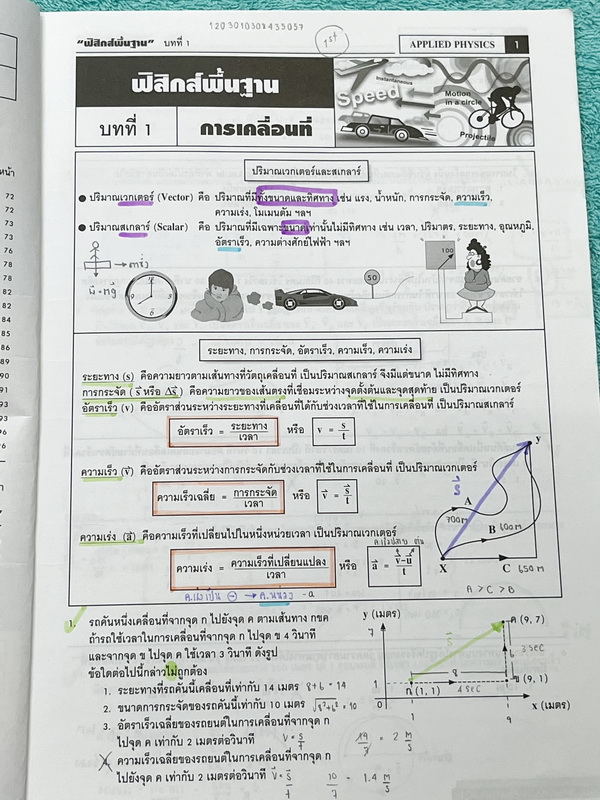 120301030x435057
"ฟิสิกส์พื้นฐาน" บทที่ 1
1st
APPLIED PHYSICS 1
ฟิสิกส์พื้นฐาน
บทที่ 1 การเคลื่อนที่
Instantaneous
Speed
Motion
in a circle
Projectile
ปริมาณเวกเตอร์และสเกลาร์
● ปริมาณเวกเตอร์ (Vector) คือ ปริมาณที่มีทั้งขนาดและทิศทาง เช่น แรง, น้ำหนัก, การกระจัด, ความเร็ว,
ความเร่ง, โมเมนตัม ฯลฯ
● ปริมาณสเกลาร์ (Scalar) คือ ปริมาณที่มีเฉพาะขนาดเท่านั้นไม่มีทิศทาง เช่น เวลา, ปริมาตร, ระยะทาง, อุณหภูมิ,
อัตราเร็ว, ความต่างศักย์ไฟฟ้า ฯลฯ
50
100
ระยะทาง, การกระจัด, อัตราเร็ว, ความเร็ว, ความเร่ง
ระยะทาง (s) คือความยาวตามเส้นทางที่วัตถุเคลื่อนที่ เป็นปริมาณสเกลาร์ จึงมีแต่ขนาด ไม่มีทิศทาง
การกระจัด (s⃗ หรือ Δs⃗) คือความยาวของเส้นตรงที่เชื่อมระหว่างจุดตั้งต้นและจุดสุดท้าย เป็นปริมาณเวกเตอร์
อัตราเร็ว (v) คืออัตราส่วนระหว่างระยะทางที่เคลื่อนที่ได้กับช่วงเวลาที่ใช้ในการเคลื่อนที่ เป็นปริมาณสเกลาร์
อัตราเร็ว = ระยะทาง / เวลา หรือ v = s / t
ความเร็ว (v⃗) คืออัตราส่วนระหว่างการกระจัดกับช่วงเวลาที่ใช้ในการเคลื่อนที่ เป็นปริมาณเวกเตอร์
ความเร็วเฉลี่ย = การกระจัด / เวลา หรือ v⃗ = s⃗ / t
ความเร่ง (a⃗) คือความเร็วที่เปลี่ยนไปในหนึ่งหน่วยเวลา เป็นปริมาณเวกเตอร์
ความเร่ง = ความเร็วที่เปลี่ยนแปลง / เวลา หรือ a⃗ = v⃗-u⃗ / t
y
s⃗
A
700m
B 600m
X C 650m
A > C > B
1. รถคันหนึ่งเคลื่อนที่จากจุด ก ไปยังจุด ค ตามเส้นทาง กขค
ถ้ารถใช้เวลาในการเคลื่อนที่จากจุด ก ไปจุด ข 4 วินาที
และจากจุด ข ไปจุด ค ใช้เวลา 3 วินาที ดังรูป
ข้อใดต่อไปนี้กล่าวไม่ถูกต้อง
1. ระยะทางที่รถคันนี้เคลื่อนที่เท่ากับ 14 เมตร 8+6 = 14
2. ขนาดการกระจัดของรถคันนี้เท่ากับ 10 เมตร √8²+6² = 10
3. อัตราเร็วเฉลี่ยของรถยนต์ในการเคลื่อนที่จากจุด ก
ไปจุด ค เท่ากับ 2 เมตรต่อวินาที v = s / t 14 / 7 = 2 m / s
4. ความเร็วเฉลี่ยของรถยนต์ในการเคลื่อนที่จากจุด ก
ไปยังจุด ค เท่ากับ 2 เมตรต่อวินาที v⃗ = s⃗ / t 10 / 7 = 1.4 m / s
y (เมตร)
7
ค (9, 7)
s⃗
6 3 sec
8
1
ก (1, 1) 4 sec ข (9, 1)
0 x (เมตร)
1 9